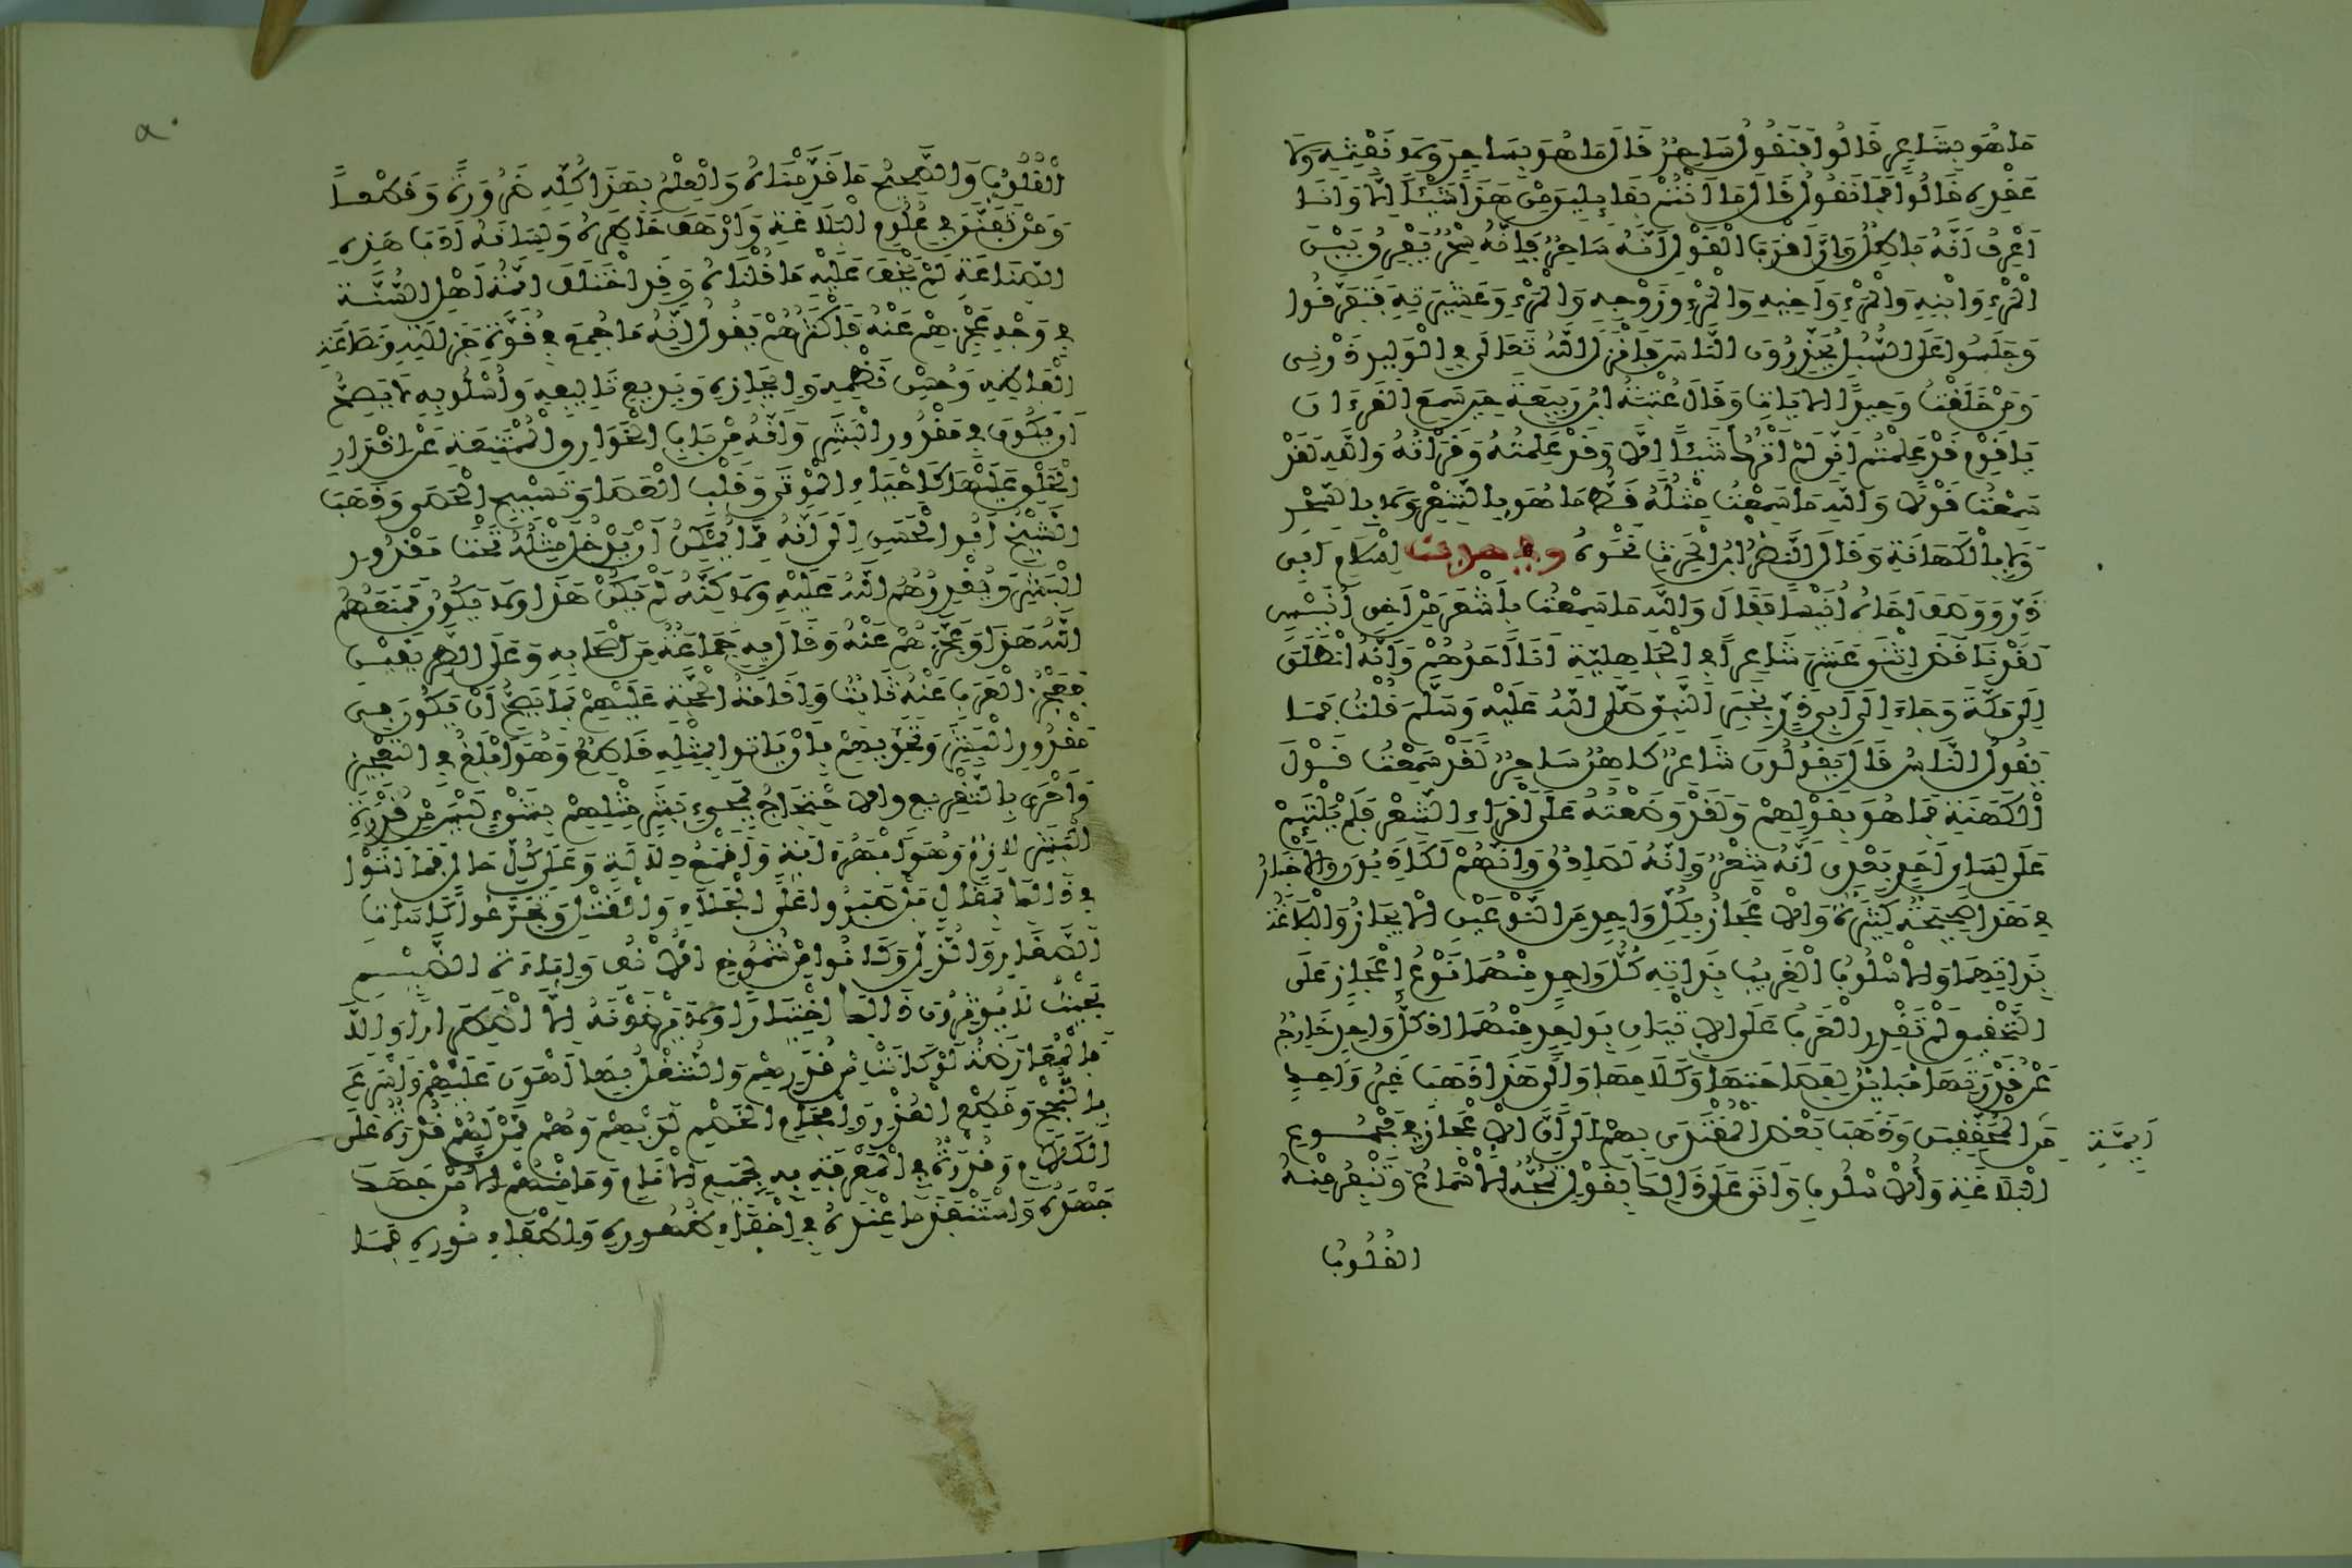 مَا هُوَ بِشَاعِرٍ قَالُوا فَنَقُولُ سَاحِرٌ قَالَ مَا هُوَ بِسَاحِرٍ وَلَا نَفْثِهِ وَلَا
عَقْدِهِ قَالُوا فَمَا نَقُولُ قَالَ مَا أَنْتُمْ بِقَائِلِينَ مِنْ هَذَا شَيْئًا إِلَّا وَأَنَا
أَعْرِفُ أَنَّهُ بَاطِلٌ وَإِنَّ أَقْرَبَ الْقَوْلِ أَنَّهُ سَاحِرٌ فَإِنَّهُ سِحْرٌ يُفَرِّقُ بَيْنَ
الْمَرْءِ وَابْنِهِ وَالْمَرْءِ وَأَخِيهِ وَالْمَرْءِ وَزَوْجِهِ وَالْمَرْءِ وَعَشِيرَتِهِ فَتَفَرَّقُوا
وَجَلَسُوا عَلَى السُّبُلِ يُحَذِّرُونَ النَّاسَ فَأَنْزَلَ اللَّهُ تَعَالَى فِي الْوَلِيدِ ذَرْنِي
وَمَنْ خَلَقْتُ وَحِيدًا الْآيَاتِ وَقَالَ عُتْبَةُ بْنُ رَبِيعَةَ حِينَ سَمِعَ الْقُرْءَانَ
يَا قَوْمِ قَدْ عَلِمْتُمْ أَنِّي لَمْ أَتْرُكْ شَيْئًا إِلَّا وَقَدْ عَلِمْتُهُ وَقَرَأْتُهُ وَاللَّهِ لَقَدْ
سَمِعْتُ قَوْلًا وَاللَّهِ مَا سَمِعْتُ مِثْلَهُ قَطُّ مَا هُوَ بِالشِّعْرِ وَلَا بِالسِّحْرِ
وَلَا بِالْكَهَانَةِ وَقَالَ النَّضْرُ بْنُ الْحَرِثِ نَحْوَهُ وفي حديث إِسْلَامِ أَبِي
ذَرٍّ وَوَصَفَ أَخَاهُ أُنَيْسًا فَقَالَ وَاللَّهِ مَا سَمِعْتُ بِأَشْعَرَ مِنْ أَخِي أُنَيْسٍ
لَقَدْ نَاقَضَ اثْنَيْ عَشَرَ شَاعِرًا فِي الْجَاهِلِيَّةِ أَنَا أَحَدُهُمْ وَإِنَّهُ انْطَلَقَ
إِلَى مَكَّةَ وَجَاءَ إِلَى أَبِي ذَرٍّ بِخَبَرِ النَّبِيِّ صَلَّى اللَّهُ عَلَيْهِ وَسَلَّمَ قُلْتُ فَمَا
يَقُولُ النَّاسُ قَالَ يَقُولُونَ شَاعِرٌ كَاهِنٌ سَاحِرٌ لَقَدْ سَمِعْتُ قَوْلَ
الْكَهَنَةِ فَمَا هُوَ بِقَوْلِهِمْ وَلَقَدْ وَضَعْتُهُ عَلَى أَقْرَاءِ الشِّعْرِ فَلَمْ يَلْتَئِمْ
عَلَى لِسَانِ أَحَدٍ بَعْدِي أَنَّهُ شِعْرٌ وَإِنَّهُ لَصَادِقٌ وَإِنَّهُمْ لَكَاذِبُونَ وَالْأَخْبَارُ
فِي هَذَا صَحِيحَةٌ كَثِيرَةٌ وَالْإِعْجَازُ بِكُلِّ وَاحِدٍ مِنَ النَّوْعَيْنِ الْإِيجَازُ وَالْبَلَاغَةُ
بِذَاتِهِمَا وَالْأُسْلُوبُ الْغَرِيبُ بِذَاتِهِ كُلُّ وَاحِدٍ مِنْهُمَا نَوْعُ إِعْجَازٍ عَلَى
التَّحْقِيقِ لَمْ تَقْدِرِ الْعَرَبُ عَلَى الْإِتْيَانِ بِوَاحِدٍ مِنْهُمَا إِذْ كُلُّ وَاحِدٍ خَارِجٌ
عَنْ قُدْرَتِهَا مُبَايِنٌ لِفَصَاحَتِهَا وَكَلَامِهَا وَإِلَى هَذَا ذَهَبَ غَيْرُ وَاحِدٍ
مِنَ الْمُحَقِّقِينَ وَذَهَبَ بَعْضُ الْمُقْتَدَى بِهِمْ إِلَى أَنَّ الْإِعْجَازَ فِي مَجْمُوعِ
أَيِمَّةِ
الْبَلَاغَةِ وَالْأُسْلُوبِ وَأَتَى عَلَى ذَلِكَ بِقَوْلٍ تَمُجُّهُ الْأَسْمَاعُ وَتَنْفِرُ مِنْهُ
الْقُلُوبُ
٥٠
الْقُلُوبُ وَالصَّحِيحُ مَا قَدَّمْنَاهُ وَالْعِلْمُ بِهَذَا كُلِّهِ ضَرُورَةً وَقَطْعًا
وَمَنْ تَفَنَّنَ فِي عُلُومِ الْبَلَاغَةِ وَأَرْهَفَ خَاطِرَهُ وَلِسَانَهُ أَدَبُ هَذِهِ
الصِّنَاعَةِ لَمْ يَخْفَ عَلَيْهِ مَا قُلْنَاهُ وَقَدِ اخْتَلَفَ أَئِمَّةُ أَهْلِ السُّنَّةِ
فِي وَجْهِ عَجْزِهِمْ عَنْهُ فَأَكْثَرُهُمْ يَقُولُ إِنَّهُ مَا جُمِعَ فِي قُوَّةِ جَزَالَتِهِ وَنَصَاعَةِ
أَلْفَاظِهِ وَحُسْنِ نَظْمِهِ وَإِيجَازِهِ وَبَدِيعِ تَأْلِيفِهِ وَأُسْلُوبِهِ لَا يَصِحُّ
أَنْ يَكُونَ فِي مَقْدُورِ الْبَشَرِ وَأَنَّهُ مِنْ بَابِ الْخَوَارِقِ الْمُمْتَنِعَةِ عَنْ إِقْدَارِ
الْخَلْقِ عَلَيْهَا كَإِحْيَاءِ الْمَوْتَى وَقَلْبِ الْعَصَا وَتَسْبِيحِ الْحَصَى وَذَهَبَ
الشَّيْخُ أَبُو الْحَسَنِ إِلَى أَنَّهُ مِمَّا يُمْكِنُ أَنْ يَدْخُلَ مِثْلُهُ تَحْتَ مَقْدُورِ
الْبَشَرِ وَيُقْدِرُهُمُ اللَّهُ عَلَيْهِ وَلَكِنَّهُ لَمْ يَكُنْ هَذَا وَلَا يَكُونُ فَمَنَعَهُمُ
اللَّهُ هَذَا وَعَجَّزَهُمْ عَنْهُ وَقَالَ بِهِ جَمَاعَةٌ مِنْ أَصْحَابِهِ وَعَلَى الطَّرِيقَيْنِ
فَعَجْزُ الْعَرَبِ عَنْهُ ثَابِتٌ وَإِقَامَةُ الْحُجَّةِ عَلَيْهِمْ بِمَا يَصِحُّ أَنْ يَكُونَ فِي
مَقْدُورِ الْبَشَرِ وَتَحَدِّيهِمْ بِأَنْ يَأْتُوا بِمِثْلِهِ قَاطِعٌ وَهُوَ أَبْلَغُ فِي التَّعْجِيزِ
وَأَحْرَى بِالتَّقْرِيعِ وَالِاحْتِجَاجُ بِمَجِيءِ بَشَرٍ مِثْلِهِمْ بِشَيْءٍ لَيْسَ مِنْ قُدْرَةِ
الْبَشَرِ لَازِمٌ وَهُوَ أَبْهَرُ آيَةٍ وَأَقْمَعُ دِلَالَةٍ وَعَلَى كُلِّ حَالٍ فَمَا أَتَوْا
فِي ذَلِكَ بِمَقَالٍ بَلْ صَبَرُوا عَلَى الْجَلَاءِ وَالْقَتْلِ وَتَجَرَّعُوا كَأْسَاتِ
الصَّغَارِ وَالذُّلِّ وَكَانُوا مِنْ شُمُوخِ الْأَنْفِ وَإِبَاءَةِ الضَّيْمِ
بِحَيْثُ لَا يُؤْثِرُونَ ذَلِكَ اخْتِيَارًا وَلَا يَرْضَوْنَهُ إِلَّا اضْطِرَارًا وَإِلَّا
فَالْمُعَارَضَةُ لَوْ كَانَتْ مِنْ قُدَرِهِمْ وَالشُّغْلُ بِهَا أَهْوَنَ عَلَيْهِمْ وَأَسْرَعَ
بِالنُّجْحِ وَقَطْعِ الْعُذْرِ وَإِفْحَامِ الْخَصْمِ لَدَيْهِمْ وَهُمْ مَنْ لَهُمْ قُدْرَةٌ عَلَى
الْكَلَامِ وَقُدْرَةٌ فِي الْمَعْرِفَةِ بِهِ لِجَمِيعِ الْأَنَامِ وَمَا مِنْهُمْ إِلَّا مَنْ جَهَدَ
جَهْدَهُ وَاسْتَنْفَدَ مَا عِنْدَهُ فِي إِخْفَاءِ ظُهُورِهِ وَإِطْفَاءِ نُورِهِ فَمَا